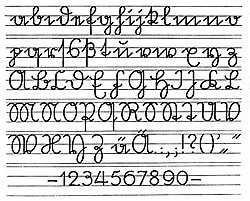 a b c d e f g h i j k l m n o
p q r ſ s ß t u v w x y z
A B C D E F G H I J K L
M N O P Q R S T U V
W X Y Z ä Ä . : , ; ! ? ( ) ' „ “
-1234567890-